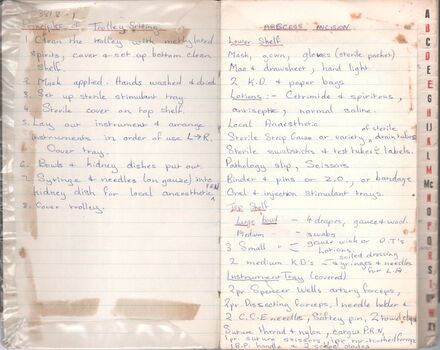 Principles of Trolley Setting.
1. Clean the trolley with methylated
spirits, cover & set up bottom clean
shelf.
2. Mask applied. Hands washed & dried
3. Set up sterile stimulant tray
4. Sterile cover on top shelf
5. Lay out instrument & arrange
instruments in order of use L→R.
Cover tray.
6. Bowls & kidney dishes put out
7. Syringe & needles (on gauze) into
kidney dish for local anaesthetic
8. Cover trolley.
ABSCESS INCISION.
Lower Shelf
Mask, gown, gloves (sterile packet)
Mac & drawsheet, hard light
2 K.D. & paper bags
Lotions:- Cetrimide & spiritous,
antiseptic, normal saline.
Local Anaesthetic
Sterile Strip Gauze or variety of sterile drain tubes
Sterile swabsticks & test tubes & labels.
Pathology slip, Scissors
Binder & pins or Z.O., or bandage
Oral & injection stimulant trays.
Top Shelf
Large bowl - 4 drapes, gauze & wool.
Medium - swabs
3 Small - gauze wick or D.T's
Lotions
soiled dressing
2 medium K.D's - syringes & needles
for L.A
Instrument Tray (covered)
2pr Spencer Wells artery forceps,
2pr Dissecting forceps, 1 needle holder &
2 C.C.E needles, Saftey pin, 2 towel clips
Suture thread & nylon, catgut P.R.N,
1pr suture scissors, 1pr rat-toothed forceps
1 B.P. handle & 2 scapel blades
A
B
C
D
E
F
G
H
IJ
K
L
M
Mc
N
O
P
Q
R
S